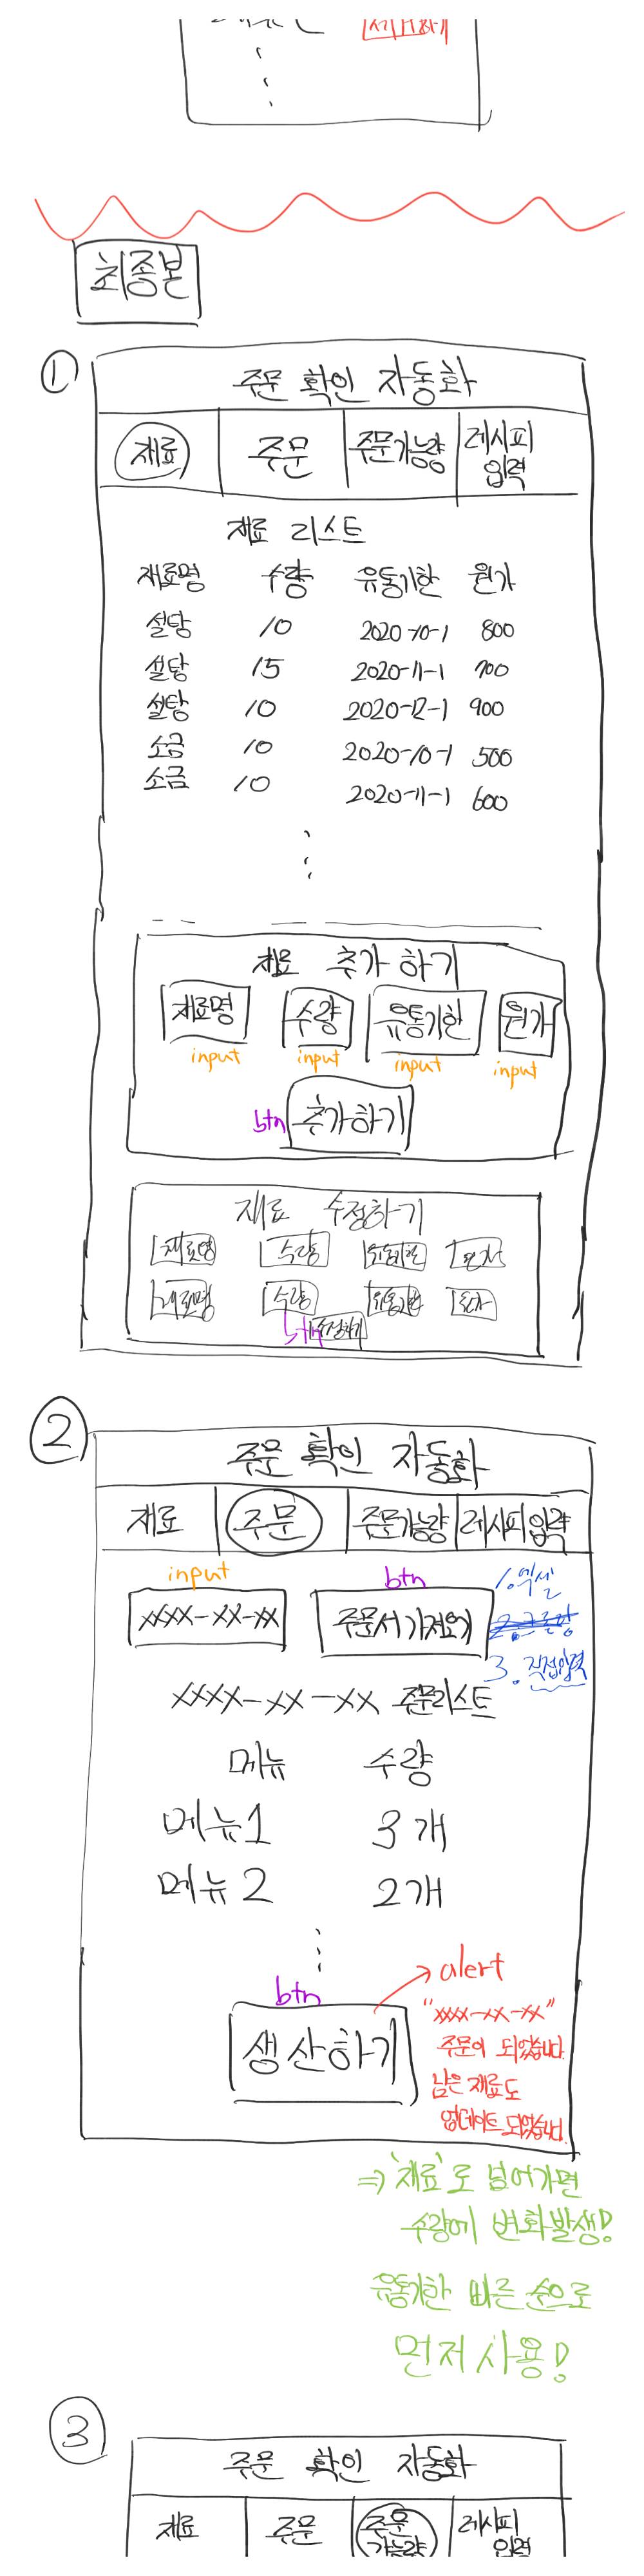 최종본
①
주문 확인 자동화
재료 주문 주문가능량 레시피 입력
재료 리스트
재료명 수량 유통기한 원가
설탕 10 2020-10-1 800
설탕 15 2020-11-1 700
설탕 10 2020-12-1 900
소금 10 2020-10-1 500
소금 10 2020-11-1 600
재료 추가하기
재료명 수량 유통기한 원가
input input input input
btn 추가하기
재료 수정하기
재료명 수량 유통기한 원가
재료명 수량 유통기한 원가
btn 수정하기
②
주문 확인 자동화
재료 주문 주문가능량 레시피입력
input btn
xxxx-xx-xx 주문서 가져오기
1. 엑셀
3. 직접입력
xxxx-xx-xx 주문리스트
메뉴 수량
메뉴1 3개
메뉴2 2개
btn
생산하기
alert
"xxxx-xx-xx"
주문이 되었습니다.
남은 재료도
업데이트 되었습니다.
⇒ '재료'로 넘어가면
수량에 변화발생!
유통기한 빠른 순으로
먼저 사용!
③
주문 확인 자동화
재료 주문 주문 가능량 레시피 입력